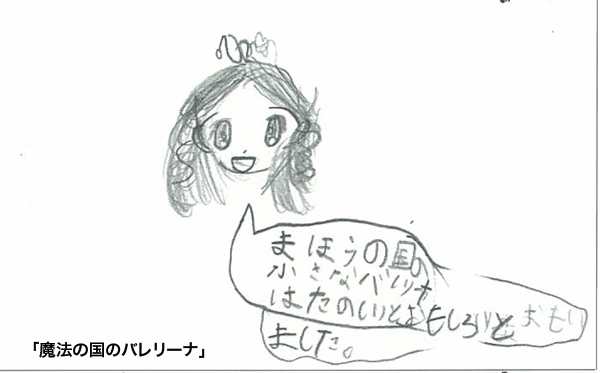 まほうの国の
小さなバレリナ
はたのしいとおもしろいとおもい
ました。
「魔法の国のバレリーナ」